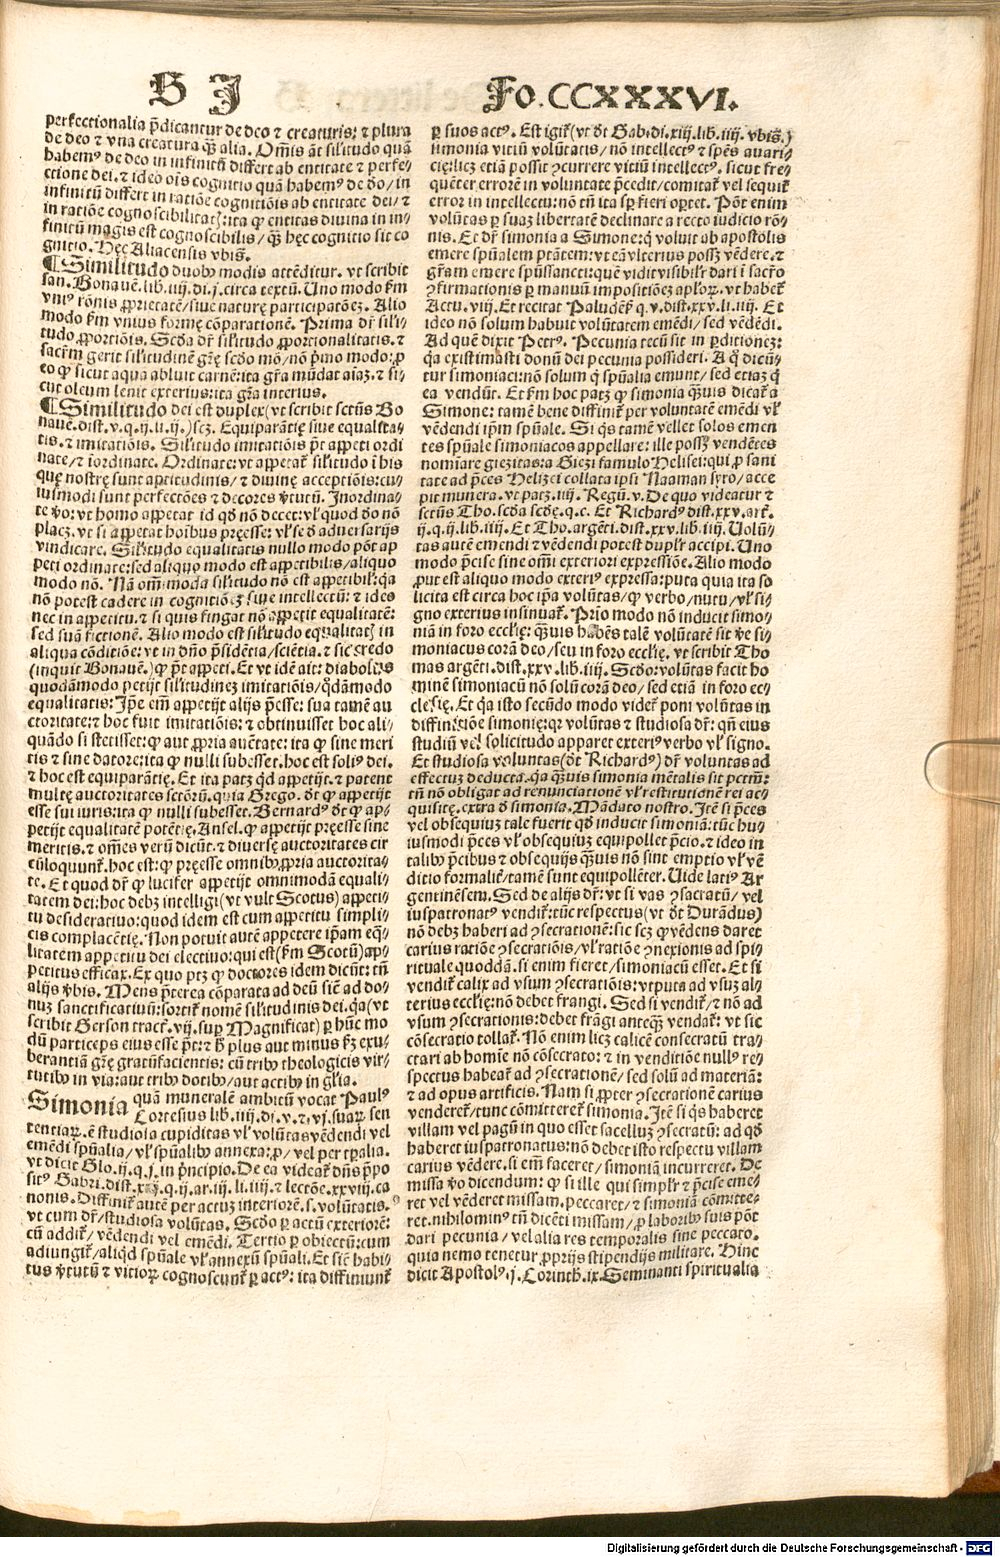 S I
Fo. CCXXXVI.
perfectionalia p̄dicantur de deo ⁊ creaturis: ⁊ plura
de deo ⁊ vna creatura q̄ȝ alia. Om̄is āt sil'itudo quā
habemꝰ de deo in infinitū differt ab entitate ⁊ perfe-
ctione dei. ⁊ ideo oīs cognitio quā habemꝰ de d̄o / in
infinitū differt in ratiōe cognitiōis ab entitate dei / ⁊
in ratiōe cognoscibilitatꝭ: ita ꝙ entitas diuina in in-
finitū magis est cognoscibilis / q̄ȝ hęc cognitio sit co
gnitio. Hęc Aliacensis vbis̄.
¶ Similitudo duobꝰ modis attēditur. vt scribit
san. Bonauē. lib. iiij. di. j. circa textū. Uno modo k̄m
vniꝰ rōnis ꝓprietatē / siue naturę participatōeȝ. Alio
modo k̄m vnius formę cōparationē. Prima dr̄ sil'i-
tudo ꝓportiōis. Scd̄a dr̄ sil'itudo ꝓportionalitatis. ⁊
sacr̄m gerit sil'itudinē gr̄ę scd̄o mō / nō p̄mo modo: ꝓ
eo ꝙ sicut aqua abluit carnē: ita gr̄a mūdat aīaȝ. ⁊ si-
cut oleum lenit exterius: ita gr̄a interius.
¶ Similitudo dei est duplex (vt scribit sctūs Bo
nauē. dist. v. q. ij. li. ij.) scȝ. Equiparātię siue equalita-
tis. ⁊ imitatiōis. Sil'itudo imitatiōis p̄t appeti ordi
nate / ⁊ īordinate. Ordinate: vt appetat̄ sil'itudo ī his
quę nostrę sunt aptitudinis / ⁊ diuinę acceptiōis: cu-
iusmodi sunt perfectōes ⁊ decores v̓tutū. Inordina-
te v̓o: vt homo appetat id qd̄ nō decet: vl' quod d̄o nō
placȝ. vt si appetat hoībus pręesse: vl' se d̄ aduersarijs
vindicare. Sil'itudo equalitatis nullo modo pōt ap
peti ordinate: sed aliquo modo est appetibilis / aliquo
modo nō. Nā om̄imoda sil'itudo nō est appetibil': q̄a
nō potest cadere in cognitiōeȝ siue intellectū: ⁊ ideo
nec in appetitu. ⁊ si quis fingat nō appetit equalitatē:
sed suā fictionē. Alio modo est sil'itudo equalitatꝭ in
aliqua cōditiōe: vt in dn̄o p̄sidētia / sciētia. ⁊ sic credo
(inquit Bonauē.) ꝙ p̄t appeti. Et vt idē ait: diabolus
quodāmodo petijt sil'itudineȝ imitatiōis / q̄dāmodo
equalitatis: Ip̄e em̄ appetijt alijs p̄esse: sua tamē au
ctoritate: ⁊ hoc fuit imitatiōis: ⁊ obtinuisset hoc ali-
quādo si stetisset: ꝙ aut ꝓpria auc̄tate: ita ꝙ sine meri
tis ⁊ sine datore: ita ꝙ nulli subesset. hoc est soliꝰ dei.
⁊ hoc est equiparātię. Et ita patȝ qd̄ appetijt. ⁊ patent
multę auctoritates sctōrū. quia Grego. d̄t ꝙ appetijt
esse sui iuris: ita ꝙ nulli subesset. Bernardꝰ d̄t ꝙ ap-
petijt equalitatē potētię. Ansel. ꝙ appetijt pręesse sine
meritis. ⁊ om̄es verū dicūt. ⁊ diuersę auctoritates cir
cūloquunt̄. hoc est: ꝙ pręesse omnibꝰ ꝓpria auctorita-
te. Et quod dr̄ ꝙ lucifer appetijt omnimodā equali-
tatem dei: hoc debȝ intelligi (vt vult Scotus) appeti-
tu desideratiuo: quod idem est cum appetitu simpli-
cis complacētię. Non potuit autē appetere ip̄am eq̄-
litatem appetitu dei electiuo: qui est (k̄m Scotū) ap-
petitus efficax. Ex quo ptȝ ꝙ doctores idem dicūt: tn̄
alijs v̓bis. Mens p̄terea cōparata ad deū siē ad do-
nuȝ sanctificatiuū: sortit̄ nomē sil'itudinis dei. q̄a (vt
scribit Gerson tract̄. vij. suꝑ Magnificat) ꝑ hūc mo
dū particeps eius esse p̄t: ⁊ ħ plus aut minus k̄ȝ exu-
berantiā gr̄ę gratūfacientis: cū tribꝰ theologicis vir-
tutibꝰ in via: aut tribꝰ dotibꝰ / aut actibꝰ in gl'ia.
Simonia quā muneralē ambitū vocat Paulꝰ
Cortesius lib. iiij. di. v. ⁊ vj. suaꝝ sen
tentiaꝝ. ē studiosa cupiditas vl' volūtas vēdendi vel
emēdi sp̄ualia / vl' sp̄ualibꝰ annexa: ꝓ / vel per tp̄alia.
vt dicit Glo. ij. q. j. in p̄ncipio. De ea videat̄ dn̄s p̄po
sitꝰ Gabri. dist. q. ij. ar. iij. li. iiij. ⁊ lectōe. xxviij. ca
nonis. Diffinit̄ autē per actuȝ interiorē. s. volūtatis.
vt cum dr̄ / studiosa volūtas. Scd̄o ꝑ actū exteriorē:
cū addit̄ / vēdendi vel emēdi. Tertio ꝑ obiectū: cum
adiungit̄ / aliqd̄ sp̄uale vl' annexū sp̄uali. Et siē habi-
tus v̓tutū ⁊ vitioꝝ cognoscunt̄ ꝑ actꝰ: ita diffiniunt̄
ꝑ suos actꝰ. Est igit̄ (vt d̄t Gab. di. xiij. lib. iiij. vbis̄.)
simonia vitiū volūtatis / nō intellectꝰ ⁊ sp̄es auari-
cię: licȝ etiā possit ꝯcurrere vitiū intellectꝰ. sicut fre-
quēter errorē in voluntate p̄cedit / comitat̄ vel sequit̄
error in intellectu: nō tn̄ ita sꝑ fieri oꝑtet. Pōt enim
volūtas ꝑ suaȝ libertatē declinare a recto iudicio rō-
nis. Et dr̄ simonia a Simone: q̇ voluit ab apostōlis
emere sp̄ualem ptātem: vt eā vlterius possȝ vēdere. ⁊
gr̄am emere sp̄ussancti: quē vidit visibil'r dari ī sacr̄o
ꝯfirmationis ꝑ manuū impositiōeȝ apl'oꝝ. vt habet̄
Actu. viij. Et recitat Paluden̄. q. v. dist. xxv. li. iiij. Et
ideo nō solum habuit volūtatem emēdi / sed vēdēdi.
Ad quē dixit Petrꝰ. Pecunia tecū sit in ꝑditioneȝ:
q̄a existimasti donū dei pecunia possideri. A q̇ dicū-
tur simoniaci: nō solum q̇ sp̄ualia emunt / sed etiaȝ q̇
ea vendūt. Et k̄m hoc patȝ ꝙ simonia q̄ȝuis dicat̄ a
Simone: tamē bene diffinit̄ per voluntatē emēdi vl'
vēdendi ip̄m sp̄uale. Si q̇s tamē vellet solos emen
tes sp̄uale simoniacos appellare: ille possȝ vendētes
nomīare giezitas: a Giezi famulo Helisei: qui ꝓ sani
tate ad p̄ces Helizei collata ipsi Naaman syro / acce
pit munera. vt patȝ. iiij. Regū. v. De quo videatur ⁊
sctūs Tho. scd̄a scd̄ę. q. c. Et Richardꝰ dist. xxv. art̄.
ij. q. ij. lib. iiij. Et Tho. argēti. dist. xxv. lib. iiij. Uolū-
tas autē emendi ⁊ vēdendi potest dupl'r accipi. Uno
modo p̄cise sine om̄i exteriori expressiōe. Alio modo
ꝓut est aliquo modo exteriꝰ expressa: puta quia ita so
licita est circa hoc ip̄a volūtas / ꝙ verbo / nutu / vl' si-
gno exterius insinuat̄. Prīo modo nō inducit simo-
niā in foro ecclię: q̄ȝuis habēs talē volūtatē sit v̓e si-
moniacus corā deo / seu in foro ecclię. vt scribit Tho
mas argēti. dist. xxv. lib. iiij. Scd̄o: volūtas facit ho
minē simoniacū nō solū corā deo / sed etiā in foro ec-
clesię. Et q̄a isto secūdo modo videt̄ poni volūtas in
diffinitiōe simonię: qꝛ volūtas ⁊ studiosa dr̄: qn̄ eius
studiū vel solicitudo apparet exteriꝰ verbo vl' signo.
Et studiosa voluntas (d̄t Richardꝰ) dr̄ voluntas ad
effectuȝ deducta. q̄a q̄ȝuis simonia mētalis sit pctm̄:
tn̄ nō obligat ad renunciationē vl' restitutionē rei ac-
quisitę. extra d̄ simonia. Mādato nostro. Itē si p̄ces
vel obsequiuȝ tale fuerit qd̄ inducit simoniā: tūc hu-
iusmodi p̄ces vl' obsequiuȝ equipollet p̄cio. ⁊ ideo in
talibꝰ p̄cibus ⁊ obsequijs q̄ȝuis nō sint emptio vl' vē
ditio formalit̄: tamē sunt equipollēter. Uide latiꝰ Ar
gentinēsem. Sed de alijs dr̄: vt si vas ꝯsecratū / vel
iuspatronatꝰ vendit̄: tūc respectus (vt d̄t Durādus)
nō debȝ haberi ad ꝯsecrationē: sic scȝ ꝙ vēdens daret
carius ratiōe ꝯsecratiōis / vl' ratiōe ꝯnexionis ad spi-
rituale quoddā. si enim fieret / simoniacū esset. Et si
vendit̄ calix ad vsum ꝯsecratiōis: vtputa ad vsuȝ al-
terius ecclię: nō debet frangi. Sed si vendit̄ / ⁊ nō ad
vsum ꝯsecrationis: debet frāgi anteq̄ȝ vendat̄: vt sic
cōsecratio tollat̄. Nō enim licȝ calicē consecratū tra-
ctari ab homīe nō cōsecrato: ⁊ in venditiōe nullꝰ re-
spectus habeat̄ ad ꝯsecrationē / sed solū ad materiā:
⁊ ad opus artificis. Nam si ꝓpter ꝯsecrationē carius
venderet̄ / tunc cōmitteret̄ simonia. Itē si q̇s haberet
villam vel pagū in quo esset sacelluȝ ꝯsecratū: ad qd̄
haberet iuspatronatus: nō debet isto respectu villam
carius vēdere. si em̄ faceret / simoniā incurreret. De
missa v̓o dicendum: ꝙ si ille qui simpl'r ⁊ p̄cise eme-
ret vel vēderet missam, peccaret / ⁊ simoniā cōmitte-
ret. nihilominꝰ tn̄ dicēti missam / ꝓ laboribꝰ suis pōt
dari pecunia / vel alia res temporalis sine peccato.
quia nemo tenetur ꝓprijs stipendijs militare. Hinc
dicit Apostolꝰ. j. Corinth. ix. Seminanti spiritualia
Digitalisierung gefördert durch die Deutsche Forschungsgemeinschaft - DFG